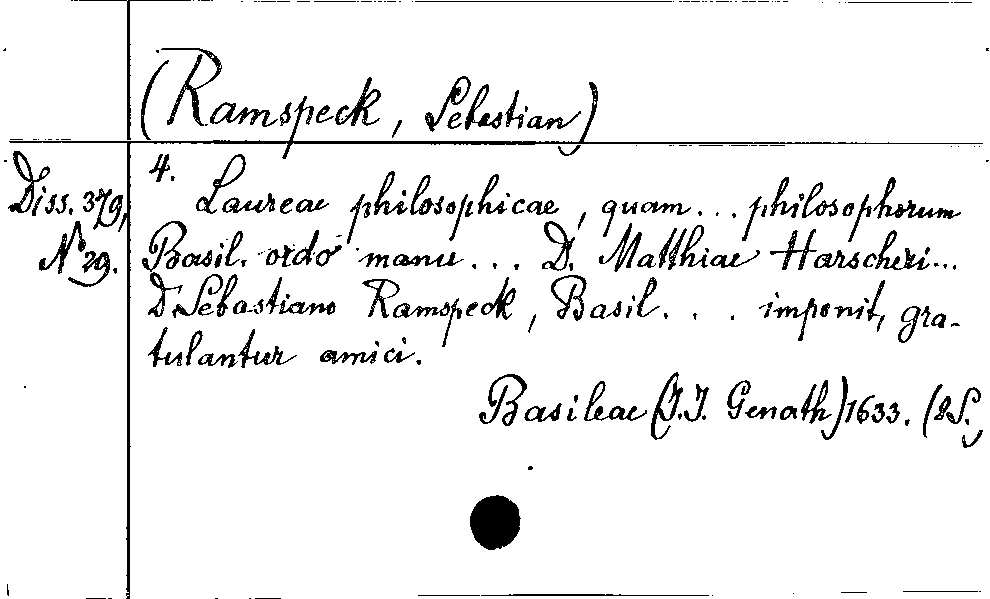 (Ramspeck, Sebastian)
4.
Diss. 379,
No 29.
Laureae philosophicae, quam... philosophorum
Basil. ordo manu... D. Matthiae Harscheri...
D. Sebastiano Ramspeck, Basil... imponit, gra-
tulantur amici.
Basileae (J.J. Genath) 1633. (8 S.)